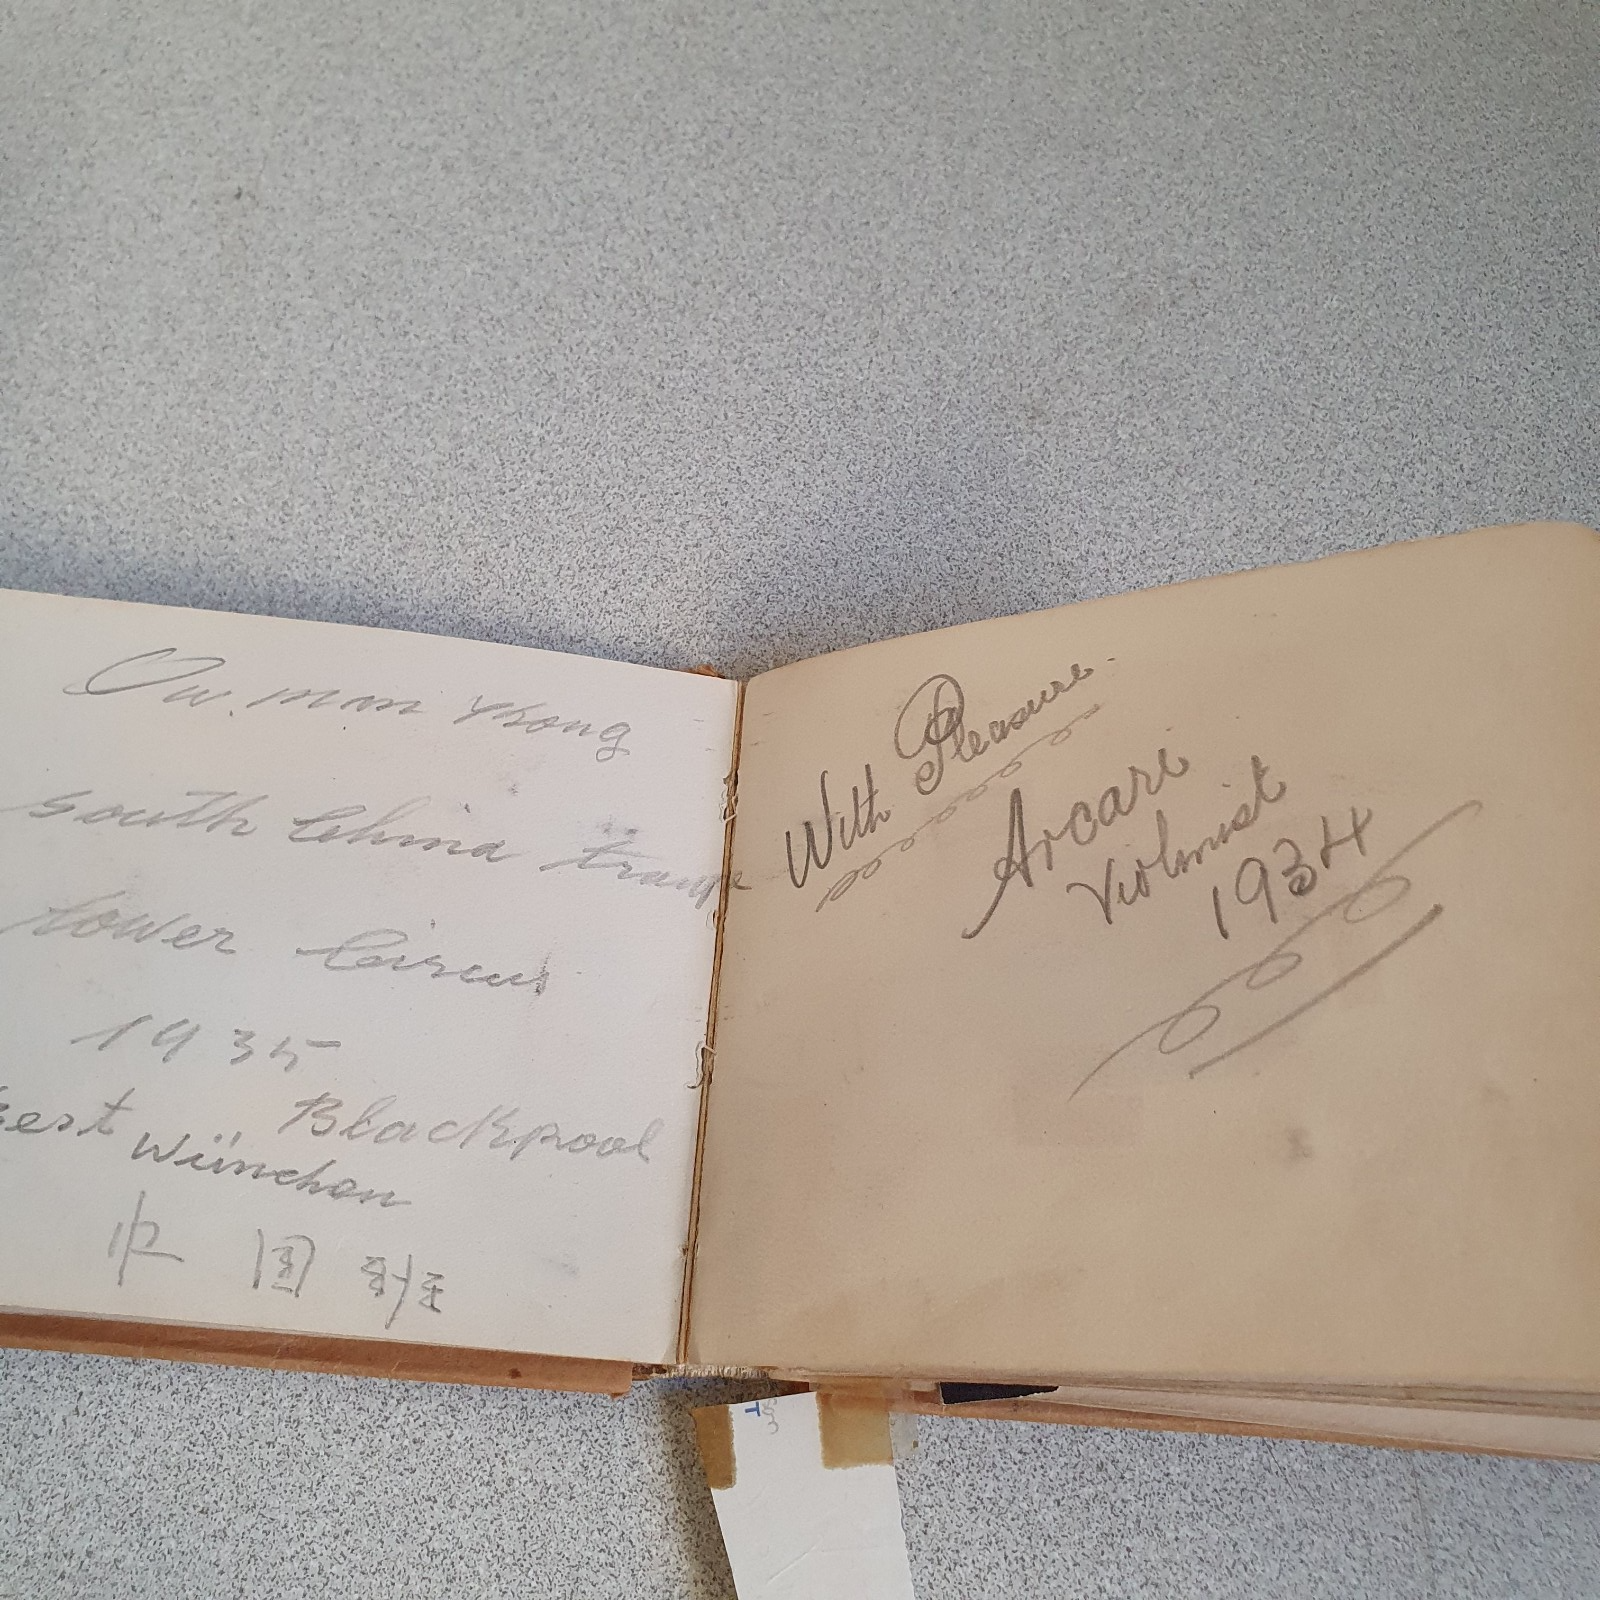 Ow. man Kong
South China Troupe
tower Circus
1935
Best Blackpool
Wünchan
中 国 班
With Pleasure.
Arcari
Violinist
1934
T